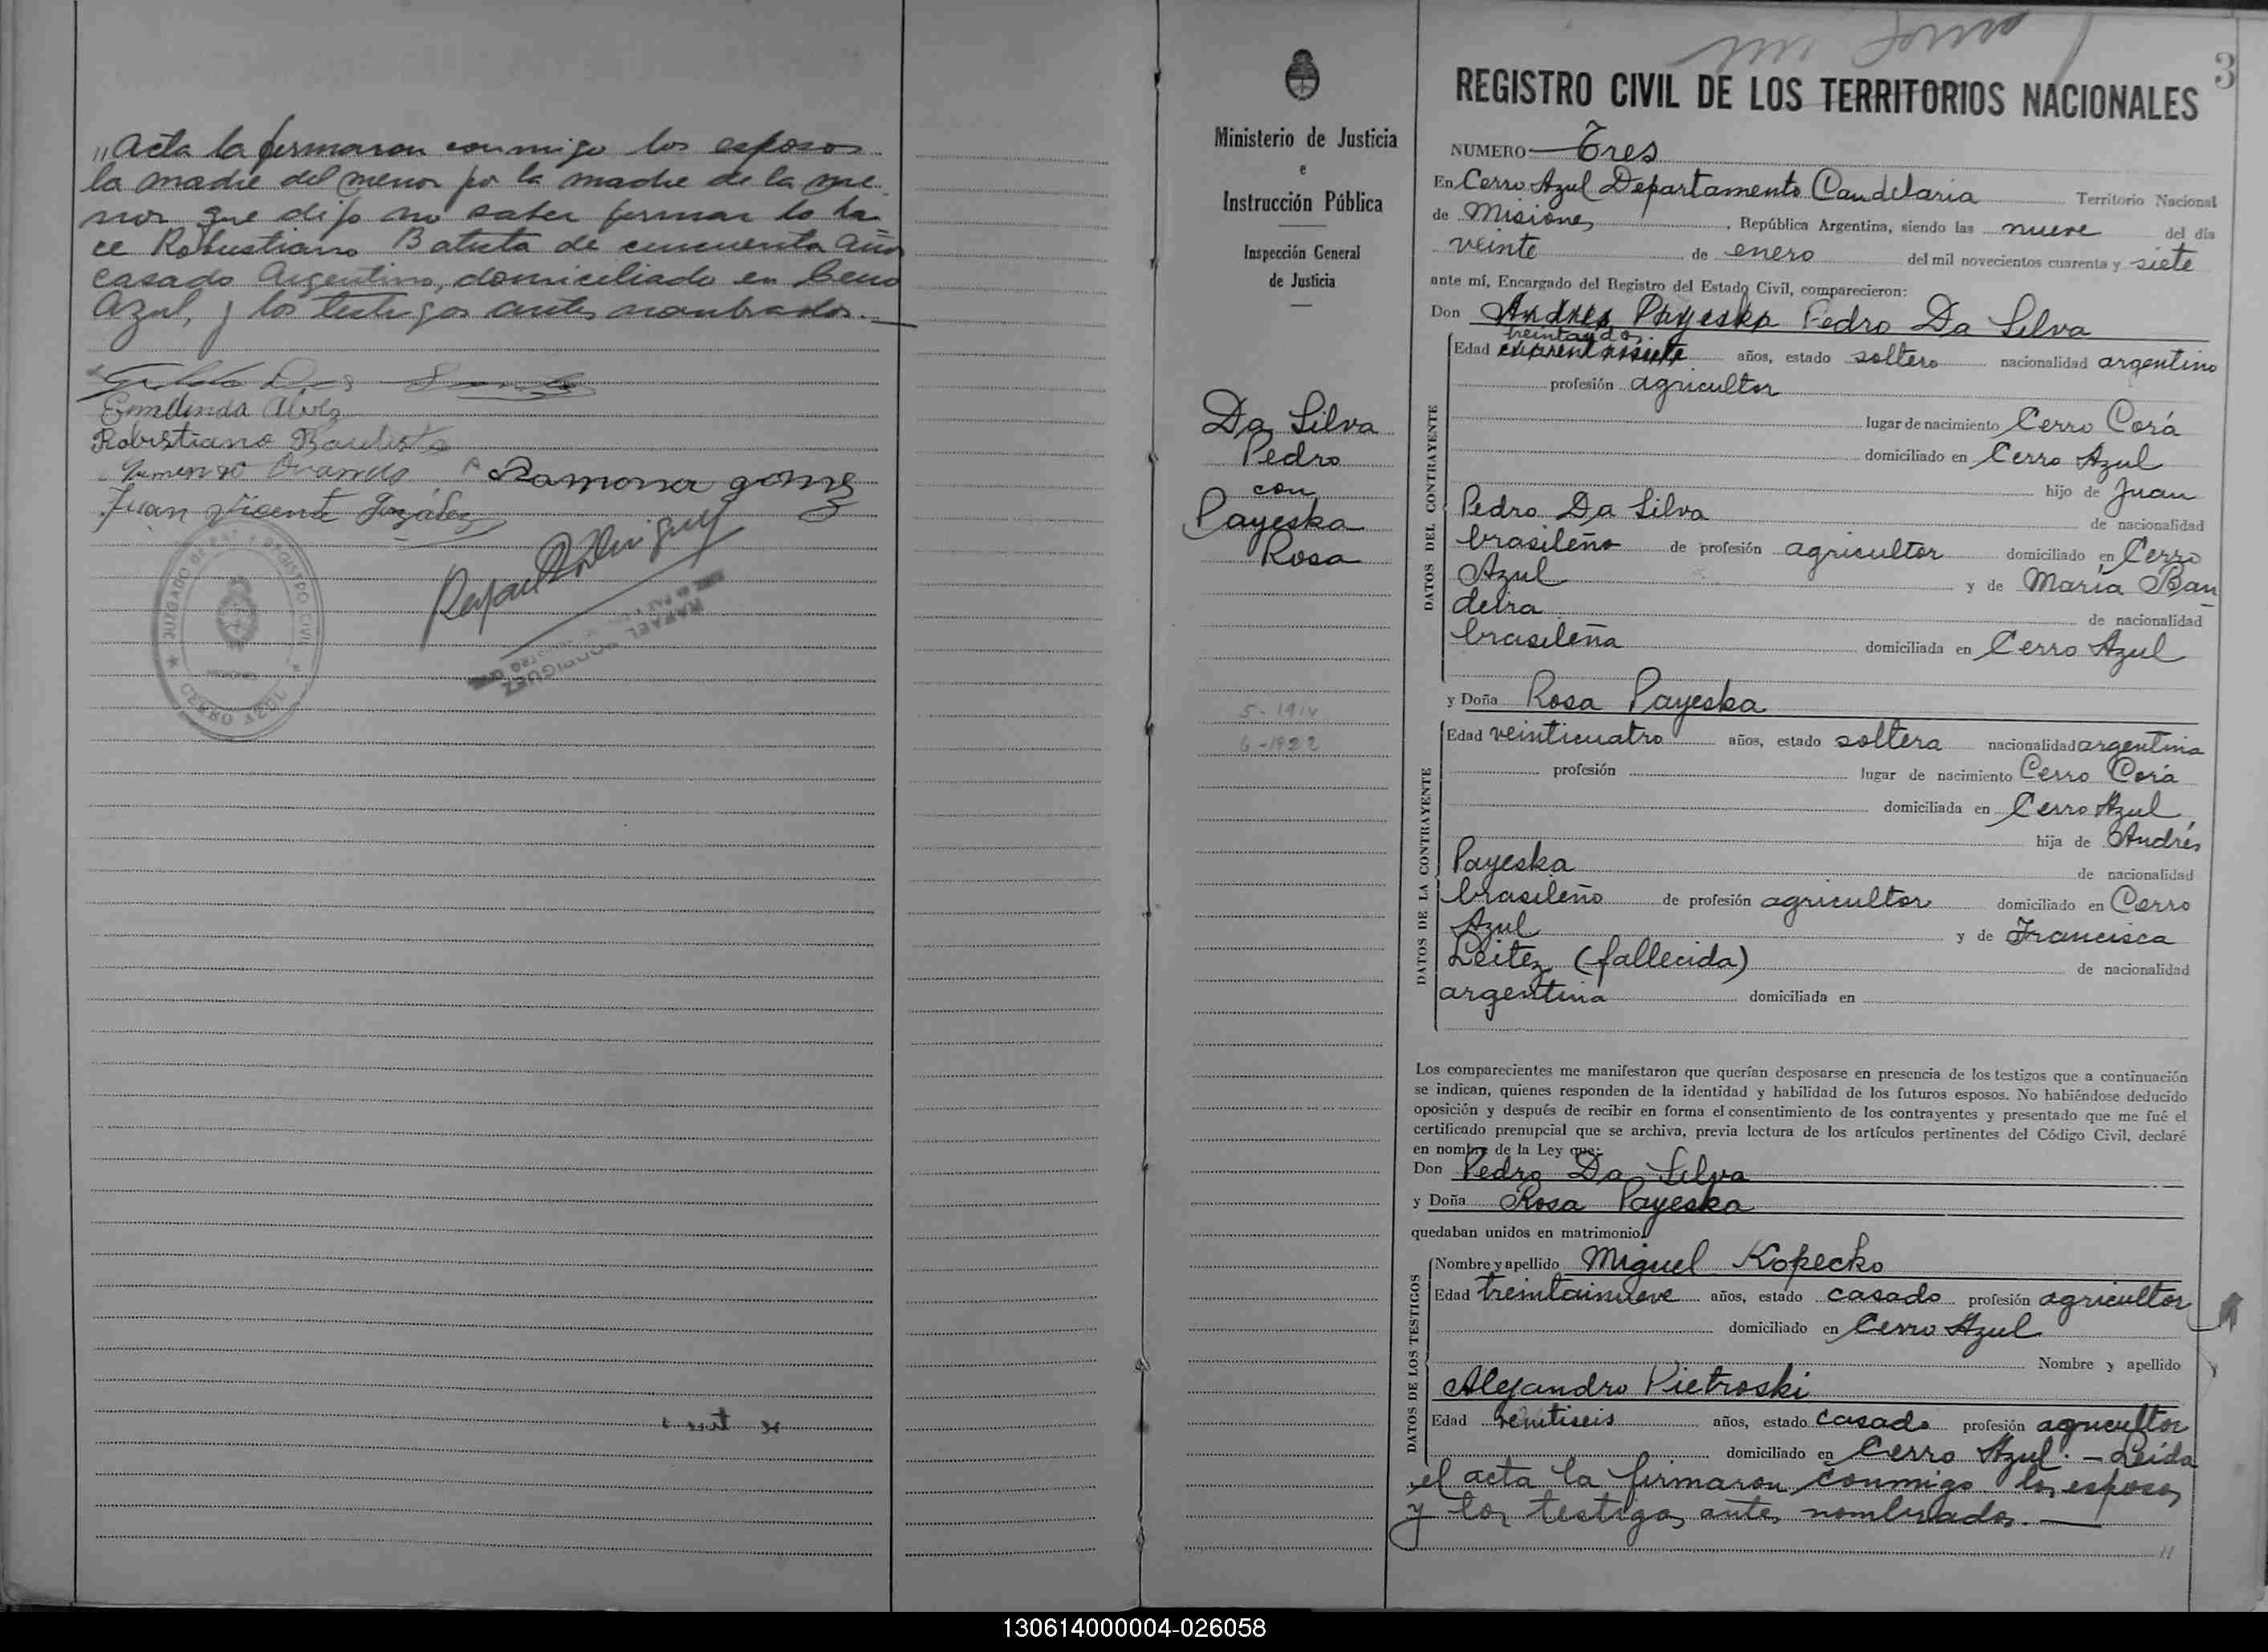 "Acta la firmaron conmigo los esposos
la madre del menor por la madre de la me-
nor que dijo no saber firmar lo ha-
ce Robustiano Batista de cincuenta años
casado Argentino, domiciliado en Cerro
Azul, y los testigos antes nombrados.—
Robustiano Bautista
Ramona gomez
Juan Vicente González
Rafael Rodriguez
JUZGADO DE PAZ Y REGISTRO CIVIL
CERRO AZUL
RAFAEL RODRIGUEZ
Ministerio de Justicia
e
Instrucción Pública
Inspección General
de Justicia
Da Silva
Pedro
con
Payeska
Rosa
5-1914
6-1922
3
REGISTRO CIVIL DE LOS TERRITORIOS NACIONALES
NUMERO Tres
En Cerro Azul Departamento Candelaria Territorio Nacional
de Misiones, República Argentina, siendo las nueve del día
veinte de enero del mil novecientos cuarenta y siete
ante mí, Encargado del Registro del Estado Civil, comparecieron:
Don Andres Payeska Pedro Da Silva
treintaidos
Edad cuarentaisiete años, estado soltero nacionalidad argentino
profesión agricultor
lugar de nacimiento Cerro Corá
domiciliado en Cerro Azul
hijo de Juan
Pedro Da Silva de nacionalidad
brasileño de profesión agricultor domiciliado en Cerro
Azul y de María Ban-
deira de nacionalidad
brasileña domiciliada en Cerro Azul
DATOS DEL CONTRAYENTE
y Doña Rosa Payeska
Edad veinticuatro años, estado soltera nacionalidad argentina
profesión lugar de nacimiento Cerro Corá
domiciliada en Cerro Azul,
hija de Andrés
Payeska de nacionalidad
brasileño de profesión agricultor domiciliado en Cerro
Azul y de Francisca
Leitez (fallecida) de nacionalidad
argentina domiciliada en
DATOS DE LA CONTRAYENTE
Los comparecientes me manifestaron que querían desposarse en presencia de los testigos que a continuación
se indican, quienes responden de la identidad y habilidad de los futuros esposos. No habiéndose deducido
oposición y después de recibir en forma el consentimiento de los contrayentes y presentado que me fué el
certificado prenupcial que se archiva, previa lectura de los artículos pertinentes del Código Civil, declaré
en nombre de la Ley que:
Don Pedro Da Silva
y Doña Rosa Payeska
quedaban unidos en matrimonio
Nombre y apellido Miguel Kopecko
Edad treintainueve años, estado casado profesión agricultor
domiciliado en Cerro Azul
Nombre y apellido
Alejandro Pietroski
Edad veintiseis años, estado casado profesión agricultor
domiciliado en Cerro Azul.— Leída
DATOS DE LOS TESTIGOS
el acta la firmaron conmigo los esposos
y los testigos antes nombrados.—
130614000004-026058